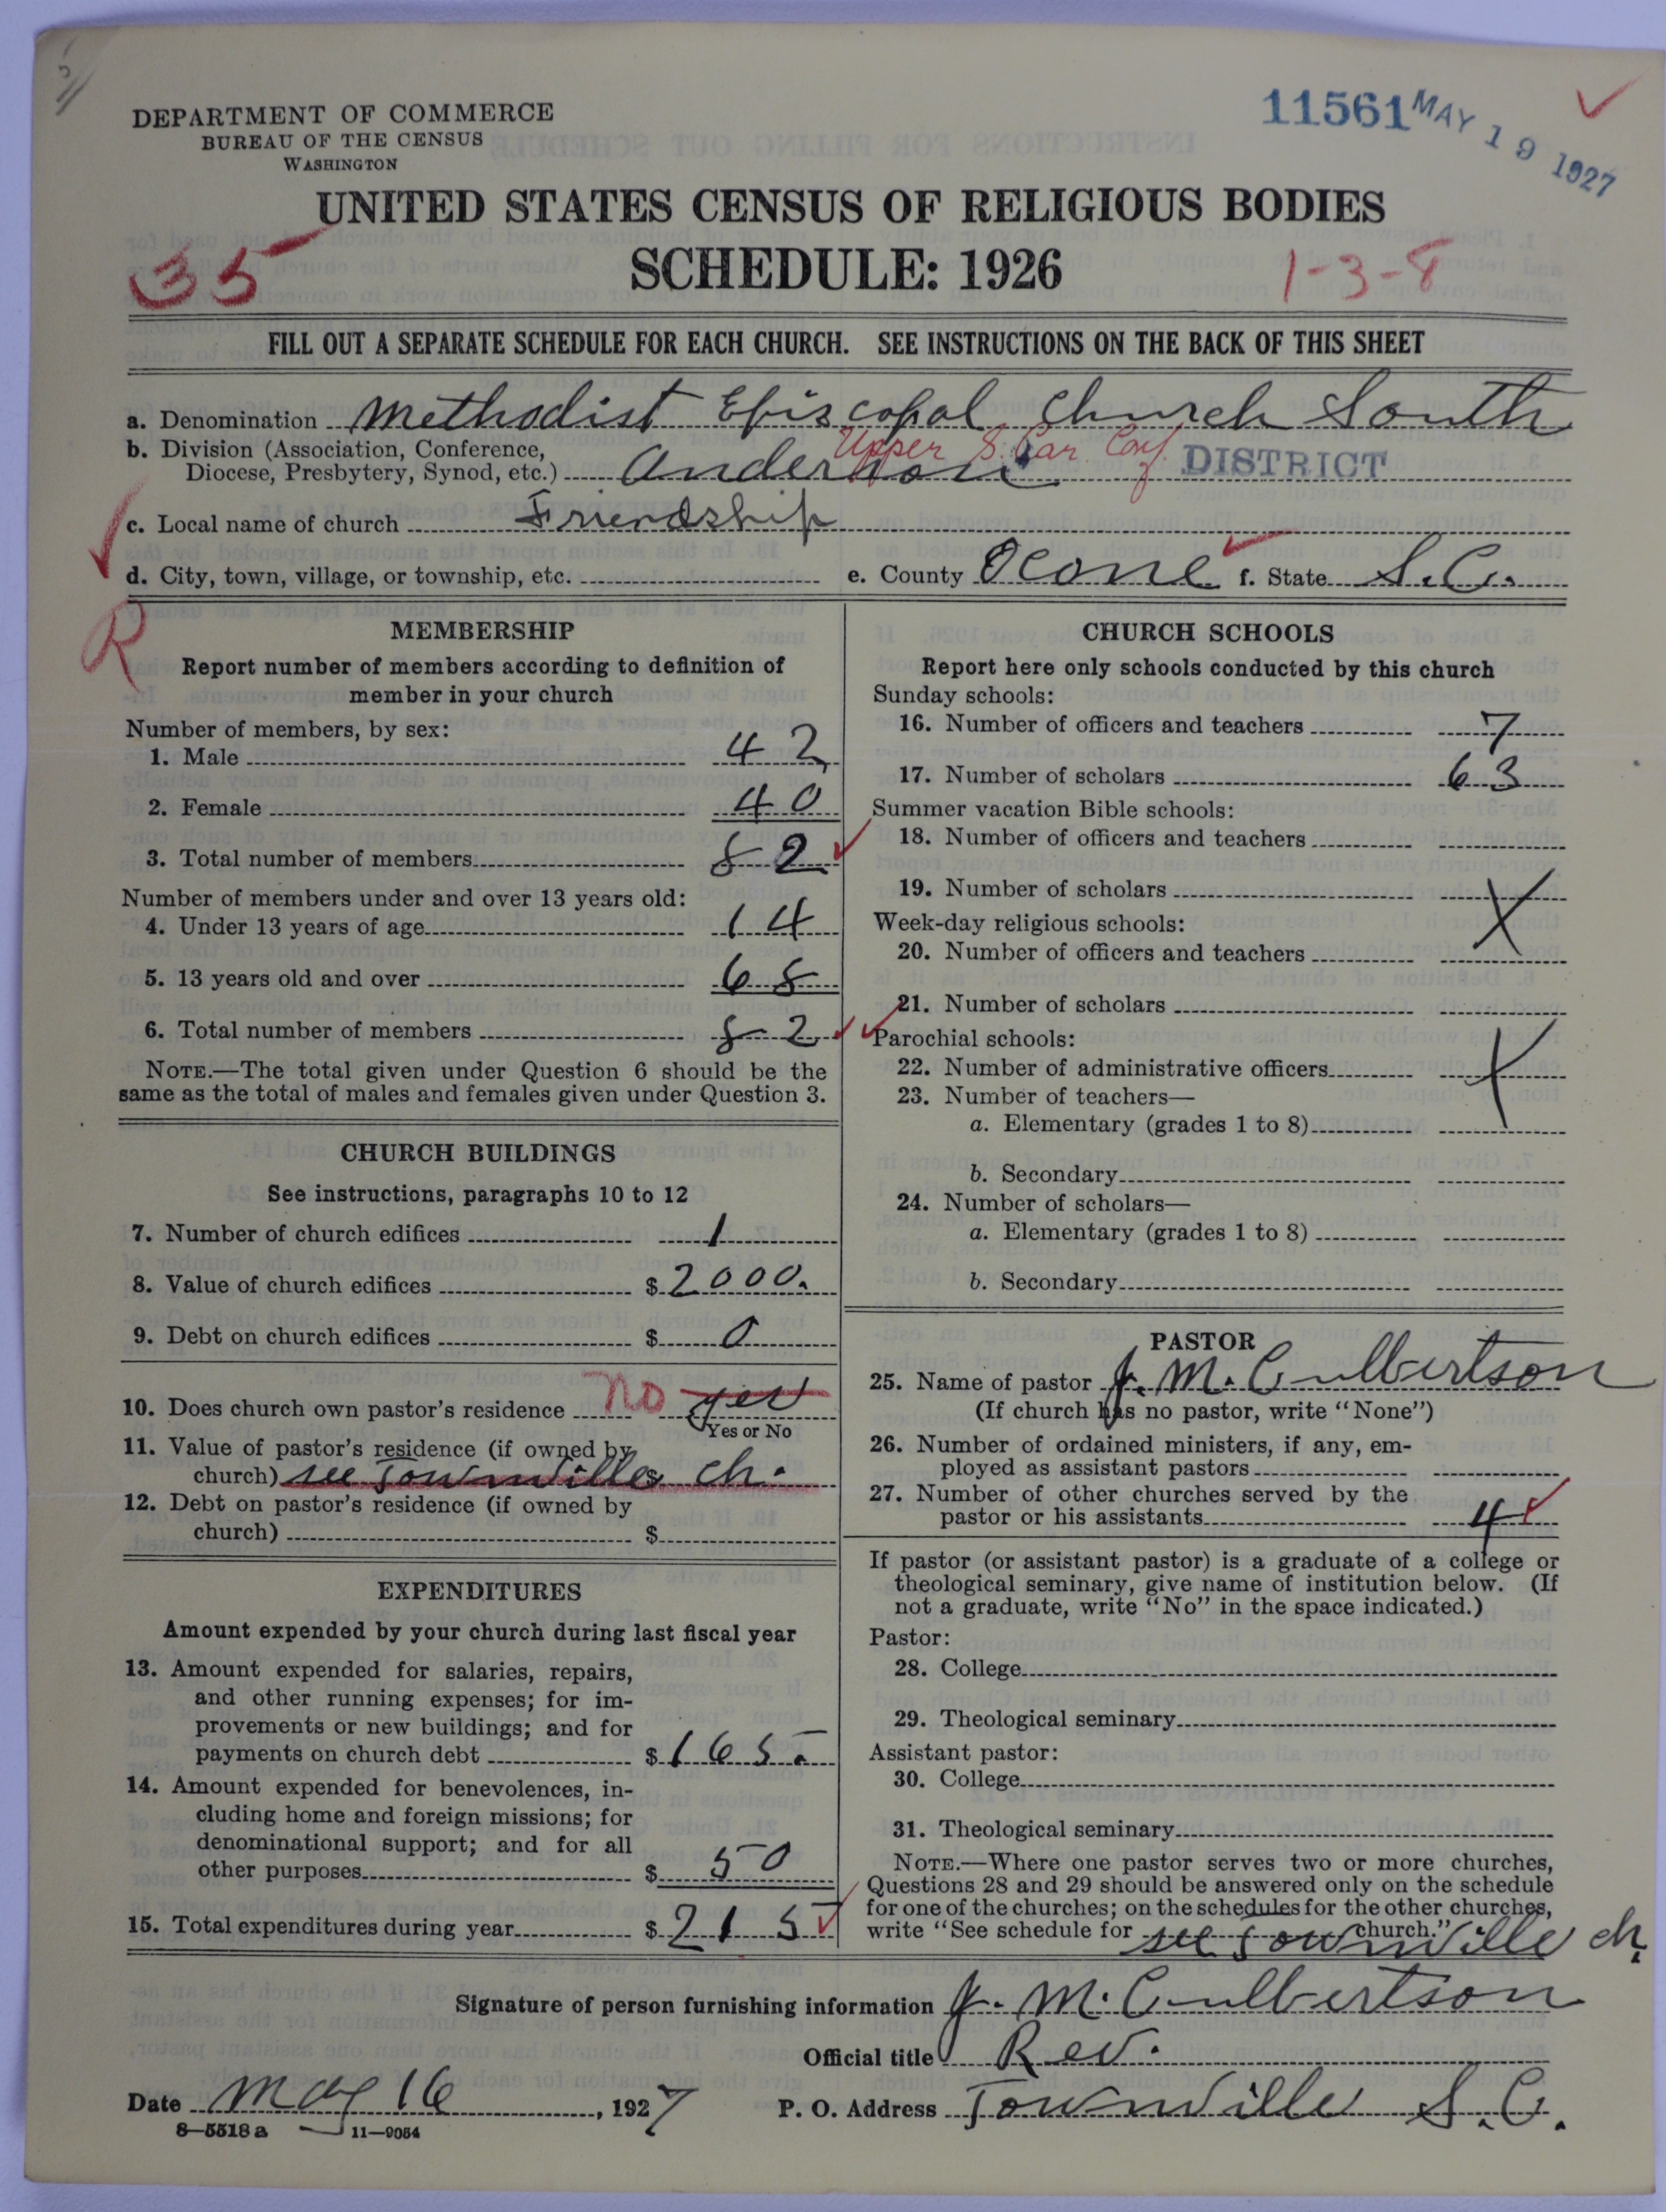 DEPARTMENT OF COMMERCE
BUREAU OF THE CENSUS
WASHINGTON
11561 MAY 19 1927
UNITED STATES CENSUS OF RELIGIOUS BODIES
SCHEDULE: 1926
35
1-3-8
FILL OUT A SEPARATE SCHEDULE FOR EACH CHURCH. SEE INSTRUCTIONS ON THE BACK OF THIS SHEET
a. Denomination Methodist Episcopal Church South
b. Division (Association, Conference,
Diocese, Presbytery, Synod, etc.) Anderson Upper S. Car. Conf. DISTRICT
c. Local name of church Friendship
d. City, town, village, or township, etc. e. County Ocone f. State S.C.
R
MEMBERSHIP
Report number of members according to definition of
member in your church
Number of members, by sex:
1. Male 42
2. Female 40
3. Total number of members 82
Number of members under and over 13 years old:
4. Under 13 years of age 14
5. 13 years old and over 68
6. Total number of members 82
NOTE.—The total given under Question 6 should be the
same as the total of males and females given under Question 3.
CHURCH BUILDINGS
See instructions, paragraphs 10 to 12
7. Number of church edifices 1
8. Value of church edifices $ 2000.
9. Debt on church edifices $ 0
10. Does church own pastor's residence no yes
Yes or No
11. Value of pastor's residence (if owned by
church) see Townville $ ch.
12. Debt on pastor's residence (if owned by
church) $
EXPENDITURES
Amount expended by your church during last fiscal year
13. Amount expended for salaries, repairs,
and other running expenses; for im-
provements or new buildings; and for
payments on church debt $ 165.
14. Amount expended for benevolences, in-
cluding home and foreign missions; for
denominational support; and for all
other purposes $ 50
15. Total expenditures during year $ 215
CHURCH SCHOOLS
Report here only schools conducted by this church
Sunday schools:
16. Number of officers and teachers 7
17. Number of scholars 63
Summer vacation Bible schools:
18. Number of officers and teachers
19. Number of scholars X
Week-day religious schools:
20. Number of officers and teachers
21. Number of scholars
Parochial schools:
22. Number of administrative officers X
23. Number of teachers—
a. Elementary (grades 1 to 8)
b. Secondary
24. Number of scholars—
a. Elementary (grades 1 to 8)
b. Secondary
PASTOR
25. Name of pastor J. M. Culbertson
(If church has no pastor, write "None")
26. Number of ordained ministers, if any, em-
ployed as assistant pastors
27. Number of other churches served by the
pastor or his assistants 4
If pastor (or assistant pastor) is a graduate of a college or
theological seminary, give name of institution below. (If
not a graduate, write "No" in the space indicated.)
Pastor:
28. College
29. Theological seminary
Assistant pastor:
30. College
31. Theological seminary
NOTE.—Where one pastor serves two or more churches,
Questions 28 and 29 should be answered only on the schedule
for one of the churches; on the schedules for the other churches,
write "See schedule for church."
see Townville ch.
Signature of person furnishing information J. M. Culbertson
Official title Rev.
Date May 16, 1927 P. O. Address Townville S.C.
8—5518a 11—9054